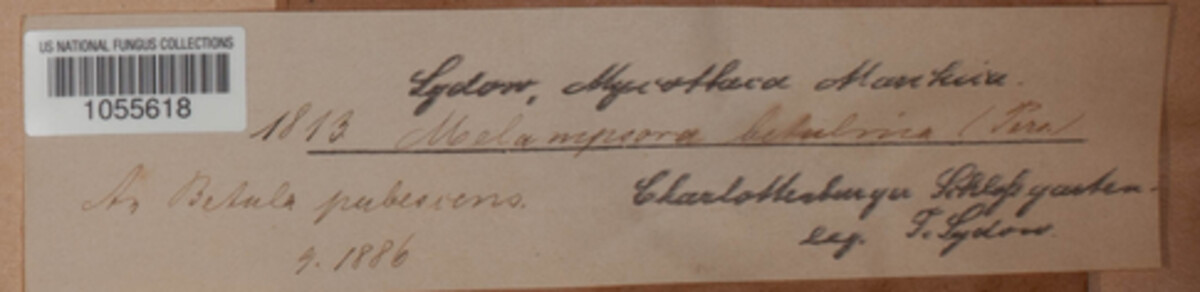 US NATIONAL FUNGUS COLLECTIONS
1055618
Sydow, Mycotheca Marchica.
1813 Melampsora betulina (Pers)
An Betula pubescens.
Charlottenburger Schloßgarten
9. 1886
leg. P. Sydow.